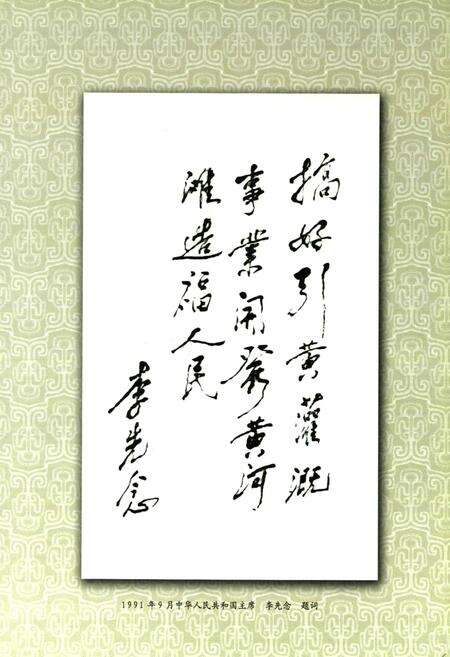 搞好引黄灌溉
事業開發黄河
滩造福人民
李先念
1991年9月中华人民共和国主席 李先念 题词